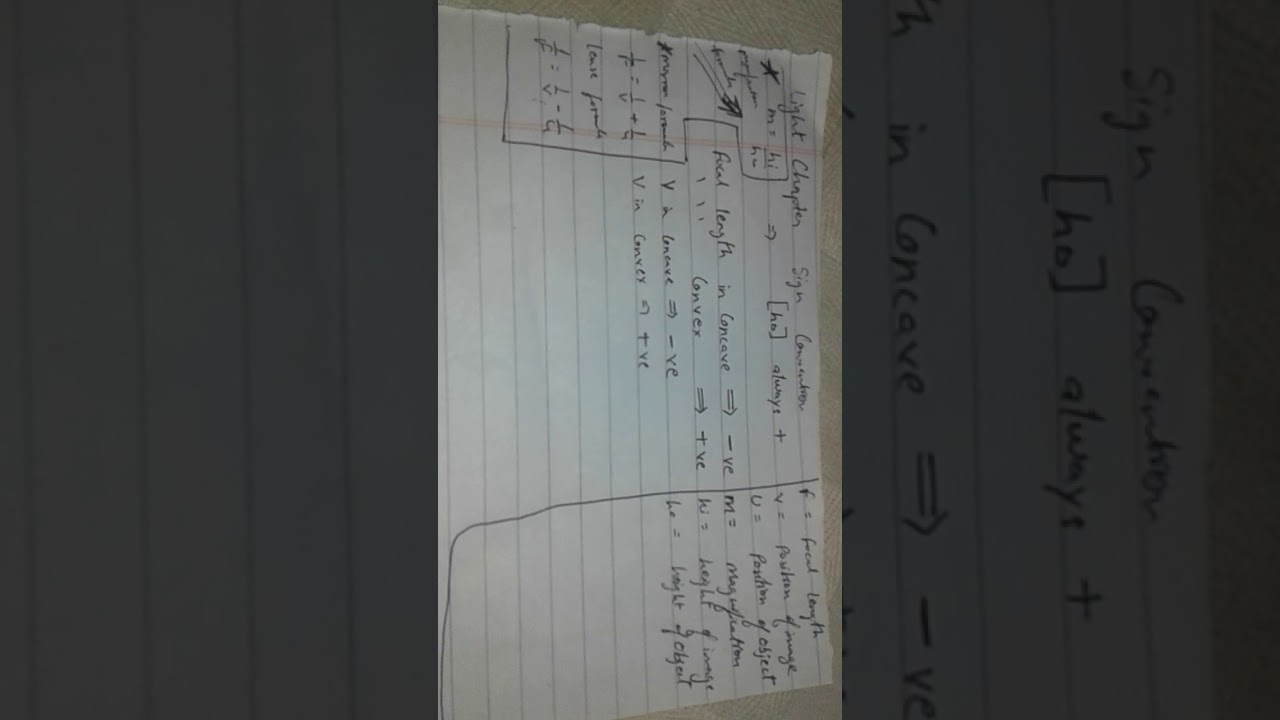 Light Chapter Sign Convention
* m = hi/ho ⇒ [ho] always +
focal length in Concave ⇒ -ve
" " Convex ⇒ +ve
V in Concave ⇒ -ve
V in Convex ⇒ +ve
*mirror formula
1/f = 1/v + 1/u
lense formula
1/f = 1/v - 1/u
f = focal length
v = Position of image
u = Position of object
m = magnification
hi = height of image
ho = height of object
Sign Convention
[ho] always +
h in Concave ⇒ -ve